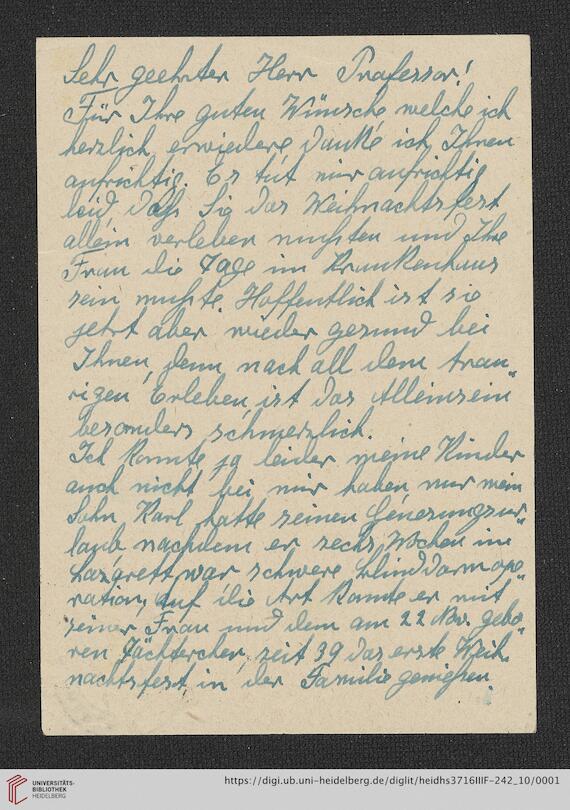 Sehr geehrter Herr Professor!
Für Ihre guten Wünsche welche ich
herzlich erwiedere danke ich Ihnen
aufrichtig. Es tut mir aufrichtig
leid, daß Sie das Weihnachtsfest
allein verleben mußten und Ihre
Frau die Tage im Krankenhaus
sein mußte. Hoffentlich ist sie
jetzt aber wieder gesund bei
Ihnen, denn nach all dem trau„
rigen Erleben ist das Alleinsein
besonders schmerzlich.
Ich konnte ja leider meine Kinder
auch nicht bei mir haben, nur mein
Sohn Karl hatte seinen Genesungsur„
laub, nachdem er sechs Wochen im
Lazarett war schwere Blinddarmope„
ration, auf die Art konnte er mit
seiner Frau und dem am 22 Nov. gebo„
ren Töchterchen seit 39 das erste Weih„
nachtsfest in der Familie genießen.
UNIVERSITÄTS-
BIBLIOTHEK
HEIDELBERG
https://digi.ub.uni-heidelberg.de/diglit/heidhs3716IIIF-242_10/0001